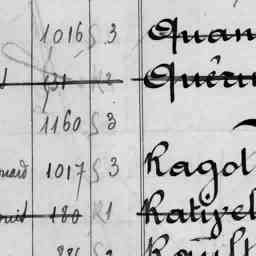 1016 S 3 Quan
631 R 2 Quéru
1160 S 3
ouard 1017 S 3 Ragot
ouis 180 R 1 Ratizel
Rault